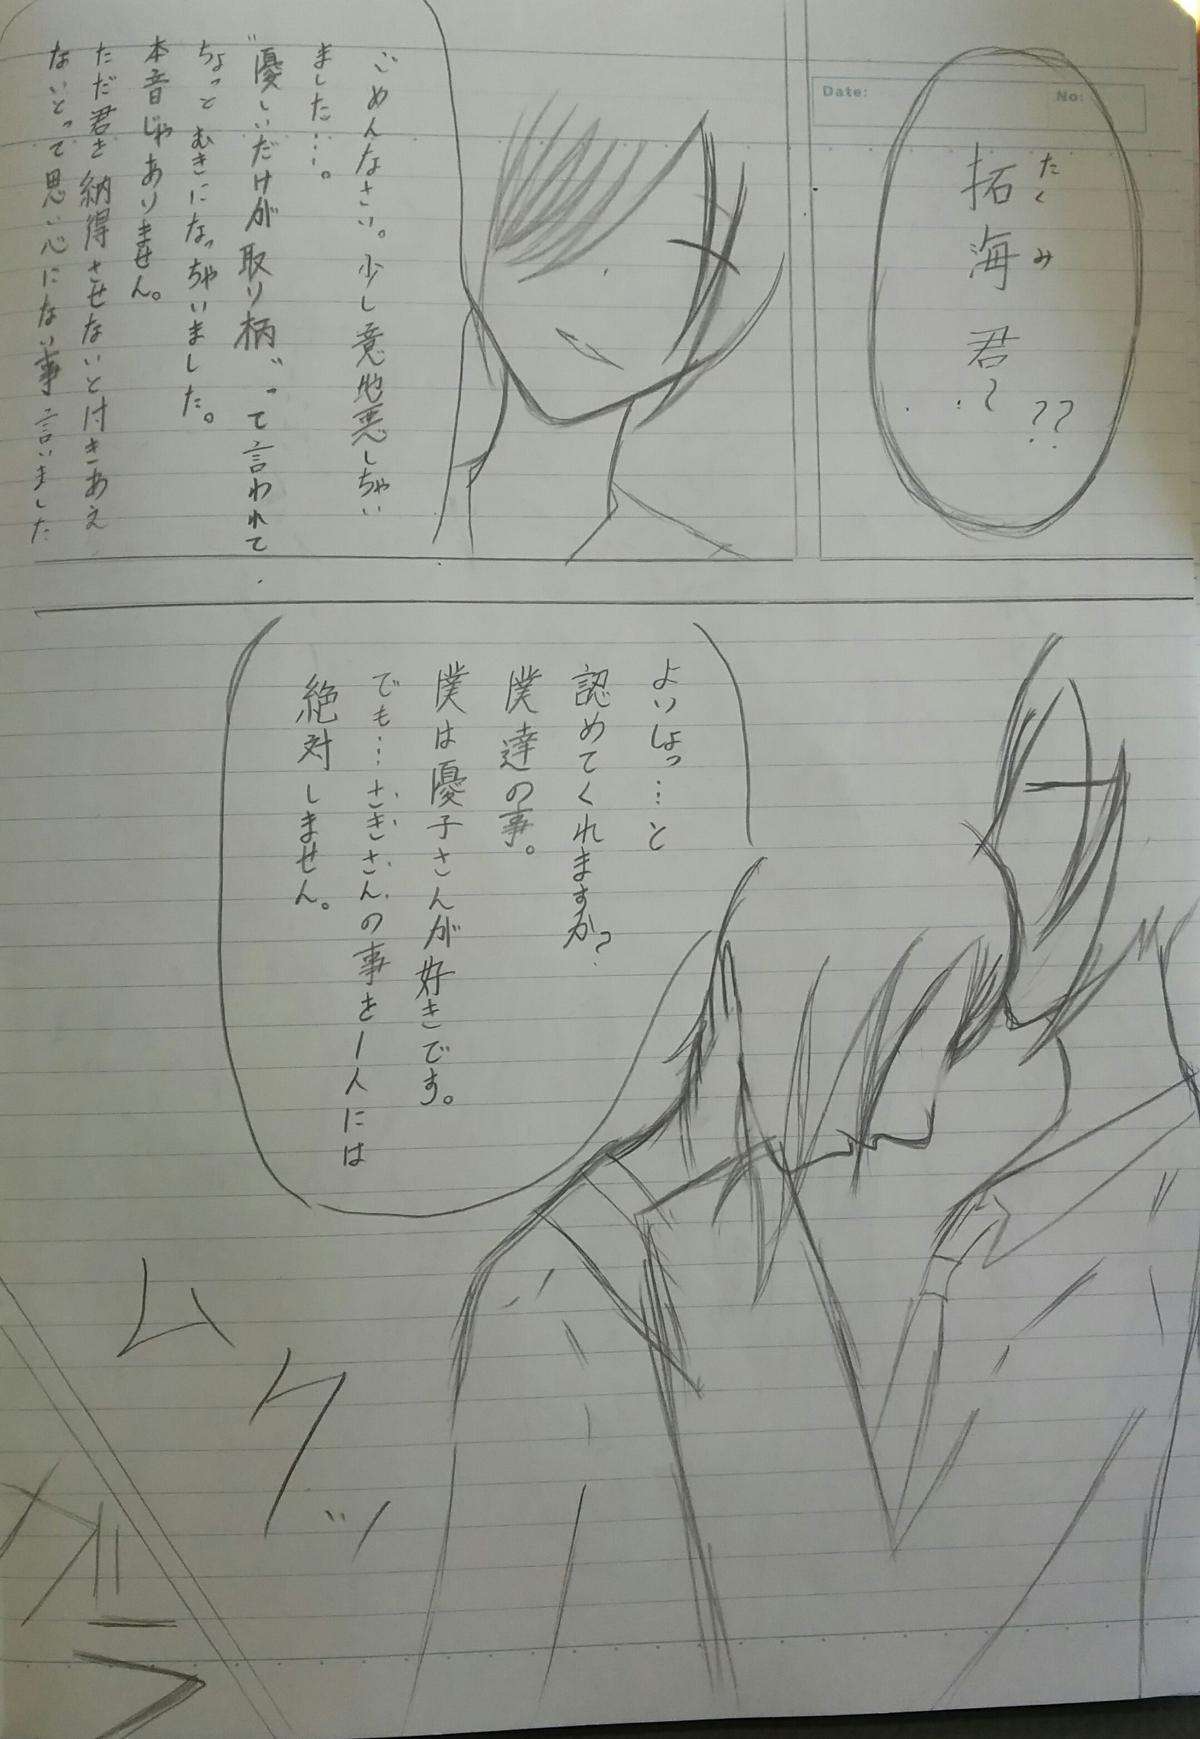 Date:
No:
拓海君～??
たくみ
ごめんなさい。少し意地悪しちゃい
ました…。
"優しいだけが取り柄"って言われて
ちょっとむきになっちゃいました。
本音じゃありません。
ただ君を納得させないと付きあえ
ないとって思い心にない事言いました
よいしょっ…と
認めてくれますか?
僕達の事。
僕は優子さんが好きです。
でも…さぎさんの事を一人には
絶対しません。
ムクッ